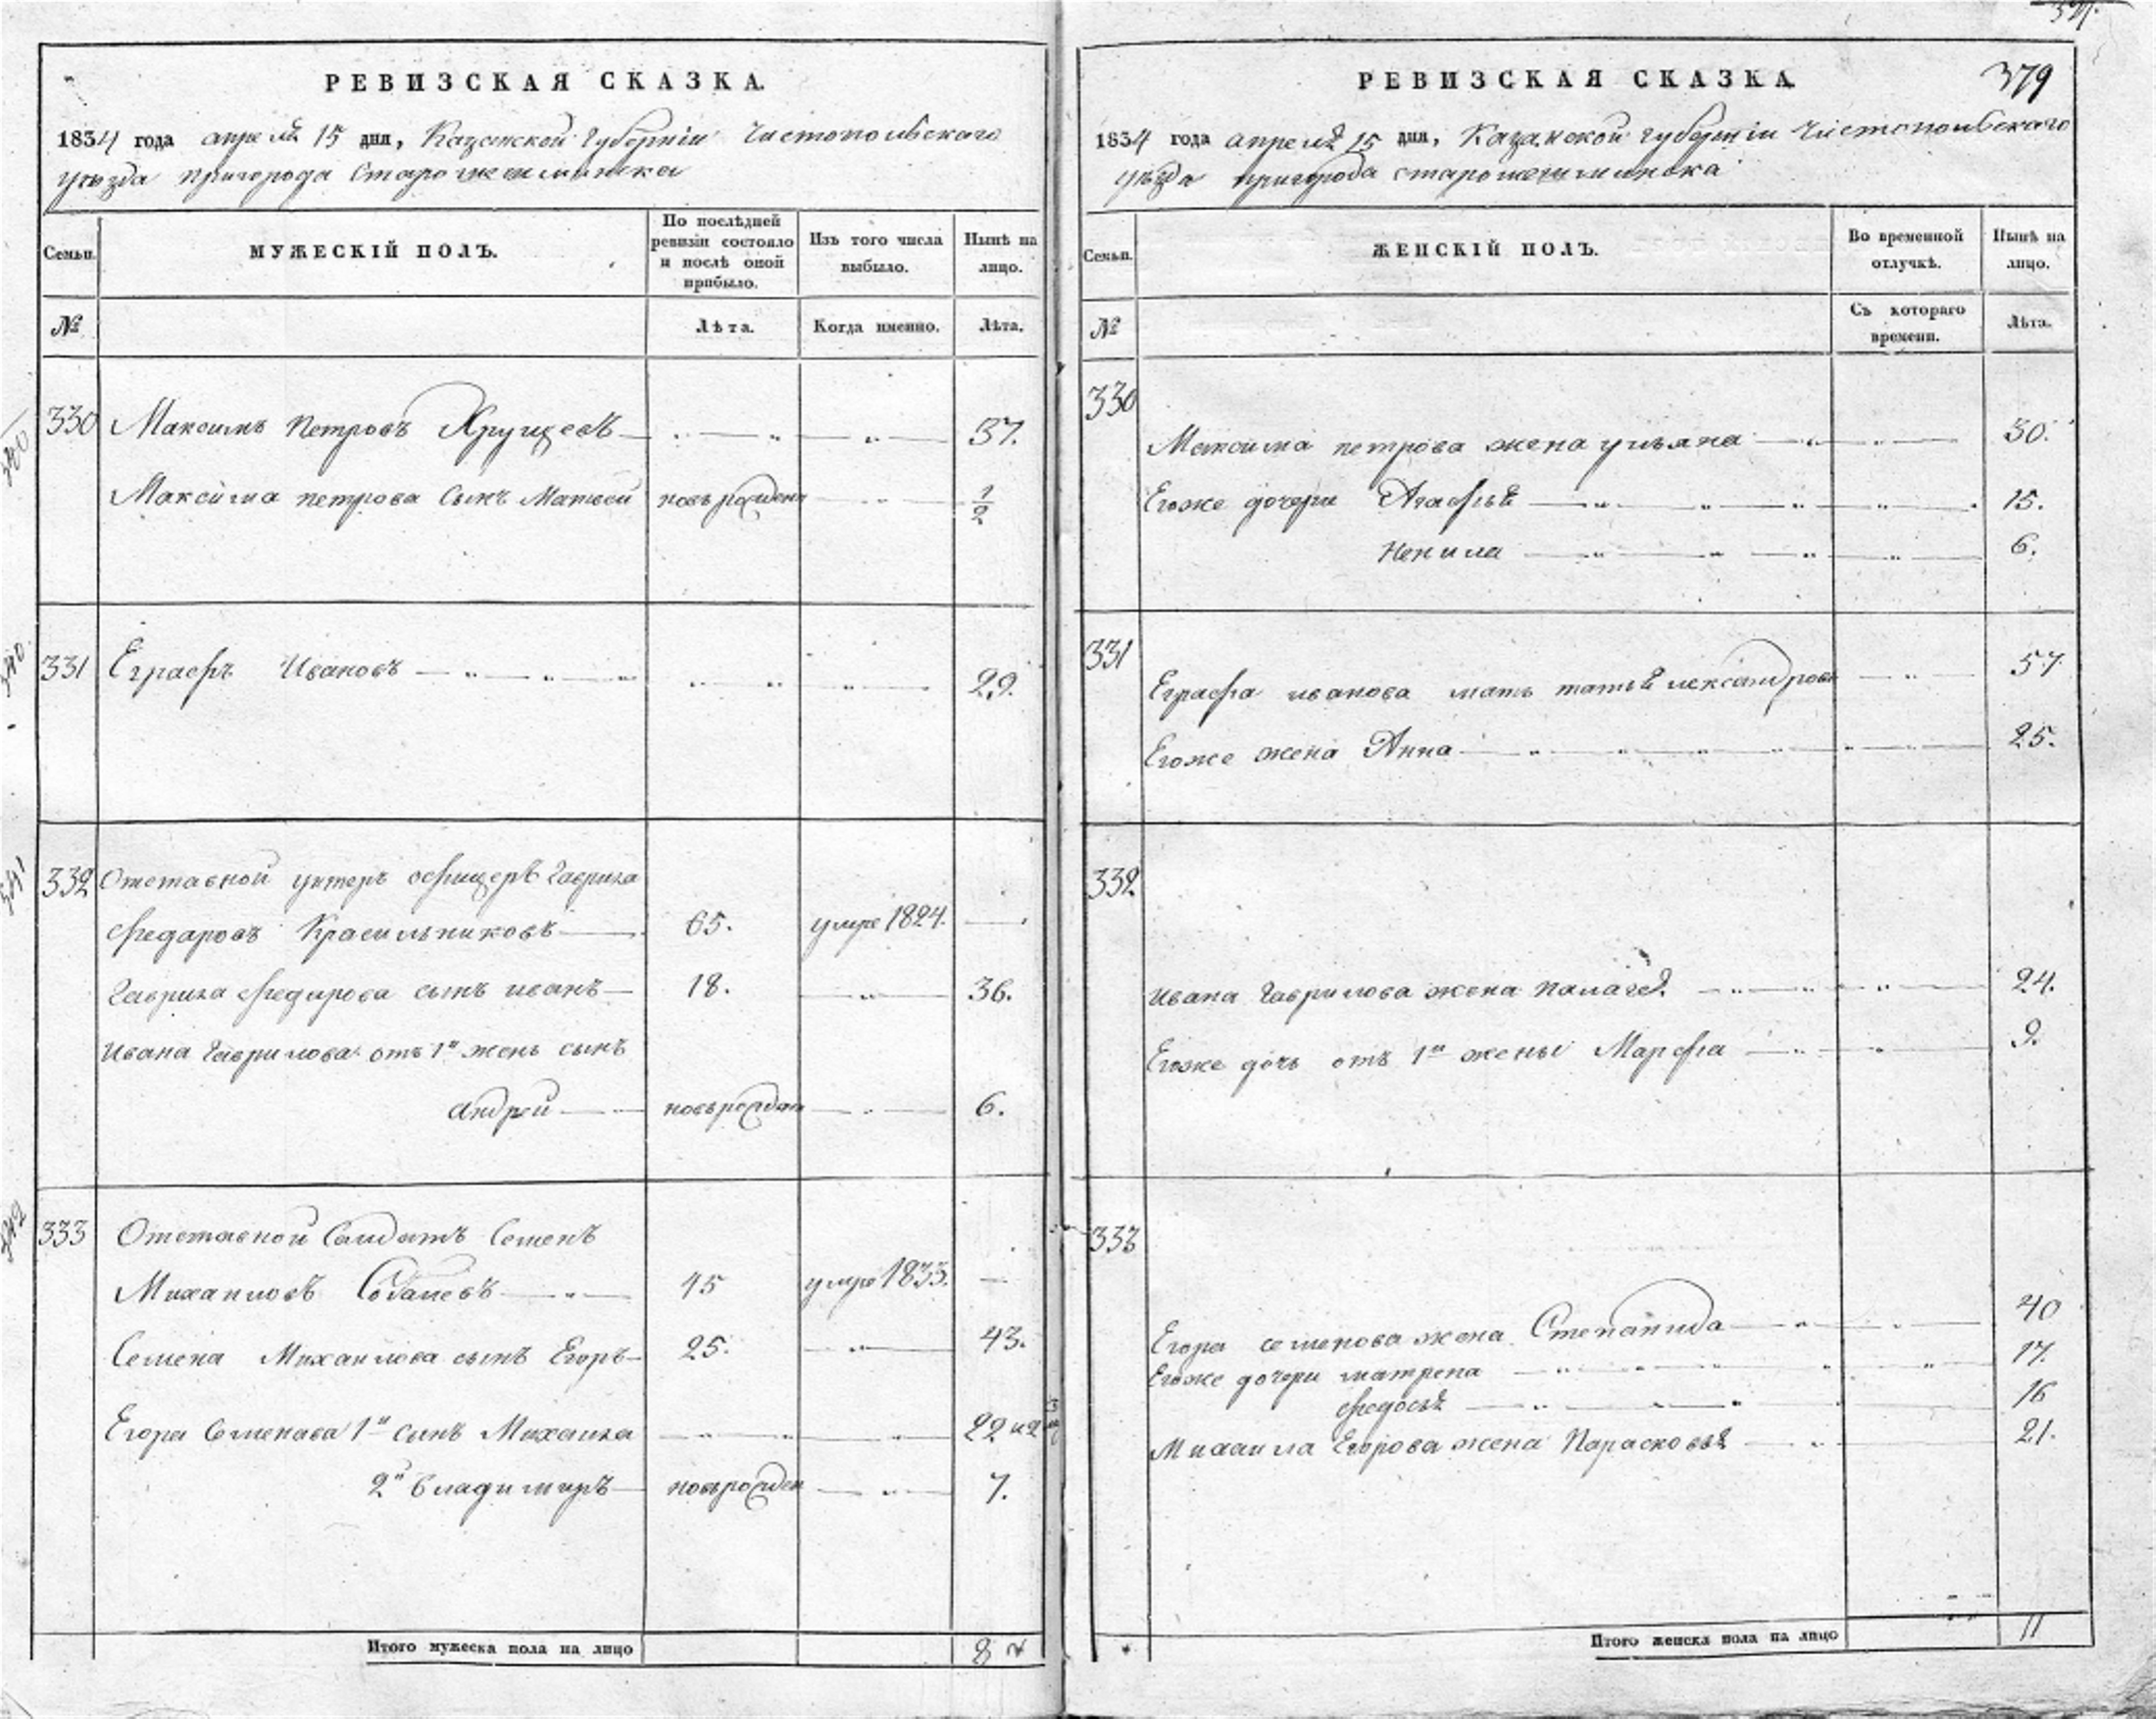 РЕВИЗСКАЯ СКАЗКА.
1834 года апреля 15 дня, Казанской губернии Чистопольскаго
уезда пригорода Старошешминска
Семьи.
МУЖЕСКІЙ ПОЛЪ.
По послѣдней ревизіи состояло и послѣ оной прибыло.
Изъ того числа выбыло.
Нынѣ на лицо.
№
Лѣта.
Когда именно.
Лѣта.
330 Максимъ Петровъ Хрущевъ 37.
Максима петрова сынъ Матвей новърожден 1/2
331 Еграфъ Ивановъ 29.
332 Отставной унтеръ офицеръ Гаврила
Федаровъ Красильниковъ 65. умре 1824.
Гаврила Федарова сынъ иванъ 18. 36.
Ивана Гаврилова отъ 1й жены сынъ
андрей новърожден 6.
333 Отставной Салдатъ Семенъ
Михаиловъ 45 умре 1833.
Семена Михаилова сынъ Егоръ 25. 43.
Егора Семенава 1й сынъ Михаила 22
2й Владимиръ новърожден 7.
Итого мужеска пола на лицо 8
379
РЕВИЗСКАЯ СКАЗКА
1834 года апреля 15 дня, Казанской губернии Чистопольскаго
уезда пригорода старошешминска
Семьи.
ЖЕНСКІЙ ПОЛЪ.
Во временной отлучкѣ.
Нынѣ на лицо.
№
Съ котораго времени.
Лѣта.
330
Максима петрова жена ульяна 30.
Егоже дочери Агафья 15.
Ненила 6.
331
Еграфа иванова мать татья лександрова 57
Егоже жена Анна 25.
332
Ивана Гаврилова жена палагея 24.
Егоже дочь отъ 1й жены Марфа 9.
333
Егора семенова жена Степанида 40
Егоже дочери матрена 17.
федосья 16
Михаила Егорова жена Парасковья 21.
Итого женска пола на лицо 11